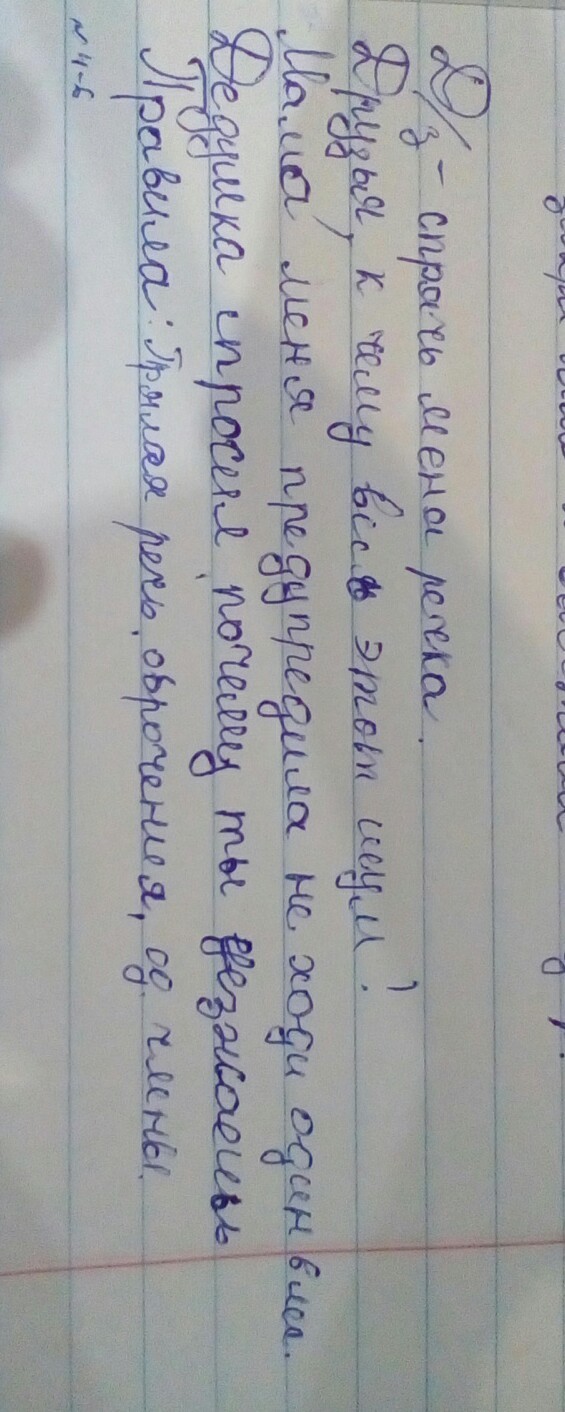 Д/з - спрячь меня речка.
Друзья, к чему весь этот шум?
Мама меня предупредила не ходи один в лес.
Дедушка спросил почему ты уезжаешь
Правила: Прямая речь, оброчения, од. члены.
№ 4-6